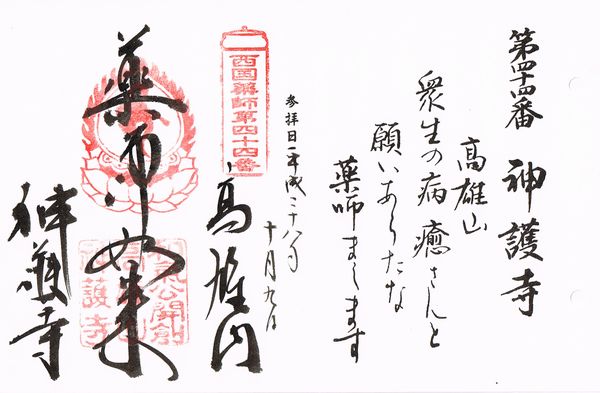 第四十四番　神護寺
高雄山
衆生の病癒さんと
願いあらたな
薬師まします
参拝日ー平成二十八年
十月九日
西国薬師第四十四番
高雄山
薬師如来
神護寺